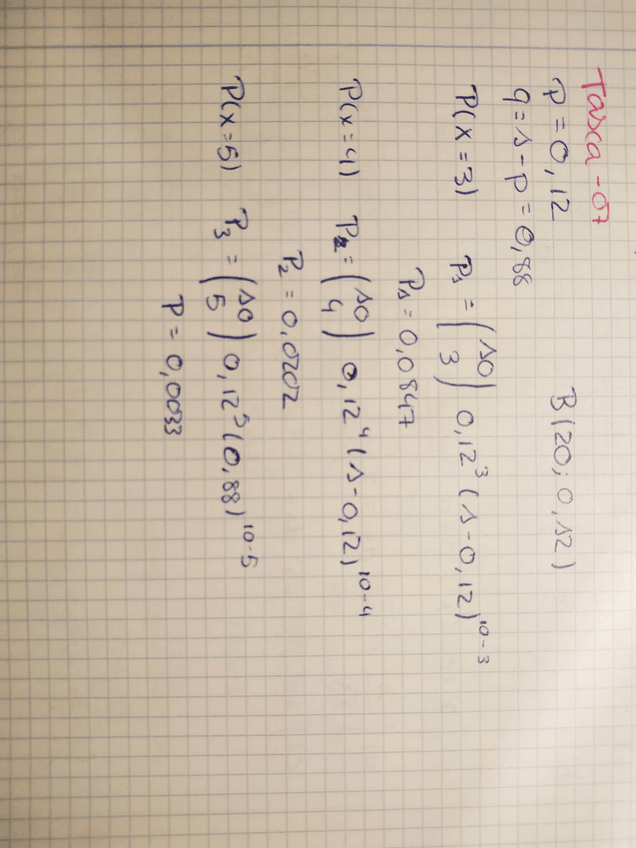 Tasca-07
p = 0,12 B(20; 0,12)
q = 1-p = 0,88
P(x=3) P1 = (10 3) 0,12^3 (1-0,12)^10-3
P1 = 0,0847
P(x=4) P2 = (10 4) 0,12^4 (1-0,12)^10-4
P2 = 0,0202
P(x=5) P3 = (10 5) 0,12^5 (0,88)^10-5
P = 0,0033